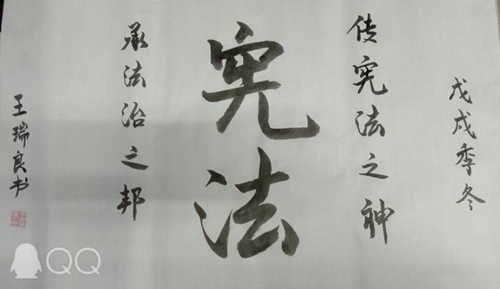 戊戌季冬
传宪法之神
宪法
承法治之邦
王瑞良书
QQ